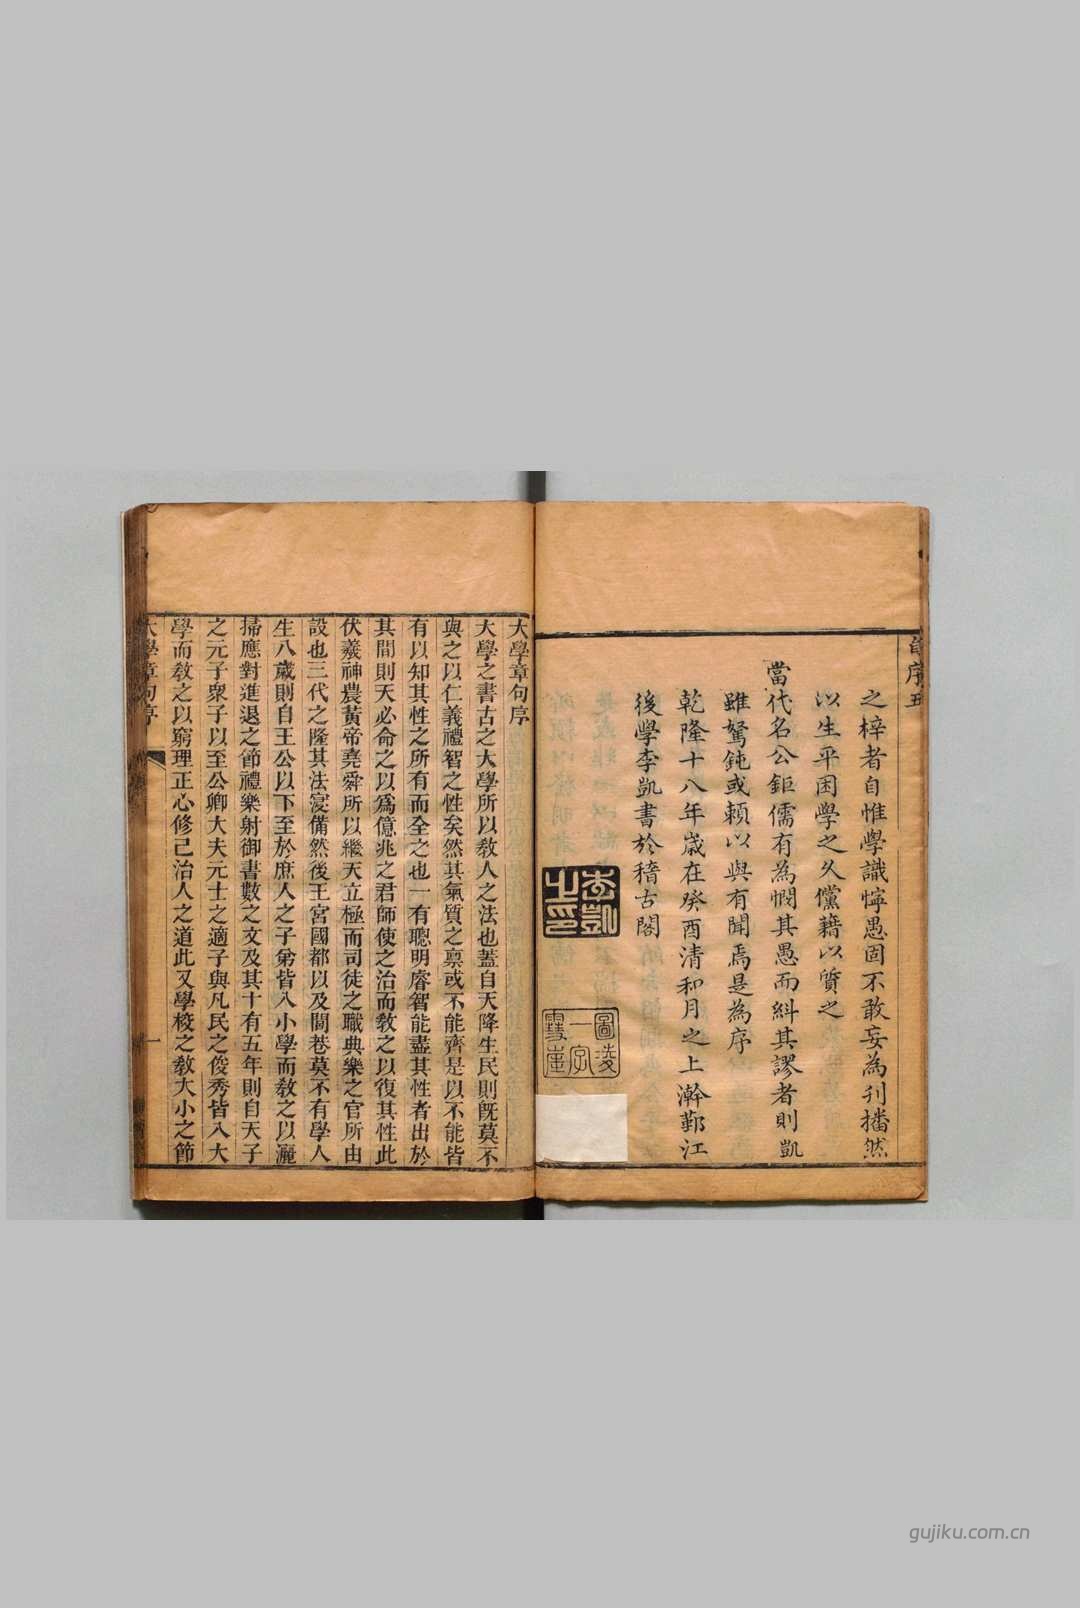 自序 五
之梓者自惟學識懧愚固不敢妄為刊播然
以生平困學之久儻藉以質之
當代名公鉅儒有為憫其愚而糾其謬者則凱
雖駑鈍或賴以與有聞焉是為序
乾隆十八年歲在癸酉清和月之上澣鄞江
後學李凱書於稽古閣
李凱之印
圖凌一字雪崖
大學章句序
大學之書古之大學所以教人之法也蓋自天降生民則既莫不
與之以仁義禮智之性矣然其氣質之稟或不能齊是以不能皆
有以知其性之所有而全之也一有聰明睿智能盡其性者出於
其間則天必命之以爲億兆之君師使之治而教之以復其性此
伏羲神農黃帝堯舜所以繼天立極而司徒之職典樂之官所由
設也三代之隆其法寖備然後王宮國都以及閭巷莫不有學人
生八歲則自王公以下至於庶人之子弟皆入小學而教之以灑
掃應對進退之節禮樂射御書數之文及其十有五年則自天子
之元子衆子以至公卿大夫元士之適子與凡民之俊秀皆入大
學而教之以窮理正心修己治人之道此又學校之教大小之節
大學章句序 一
gujiku.com.cn